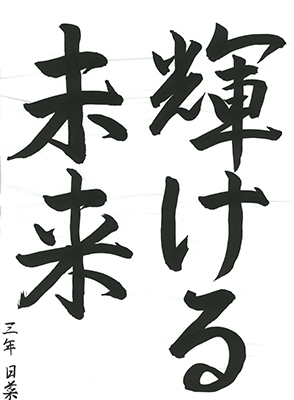 輝ける
未来
三年 日菜